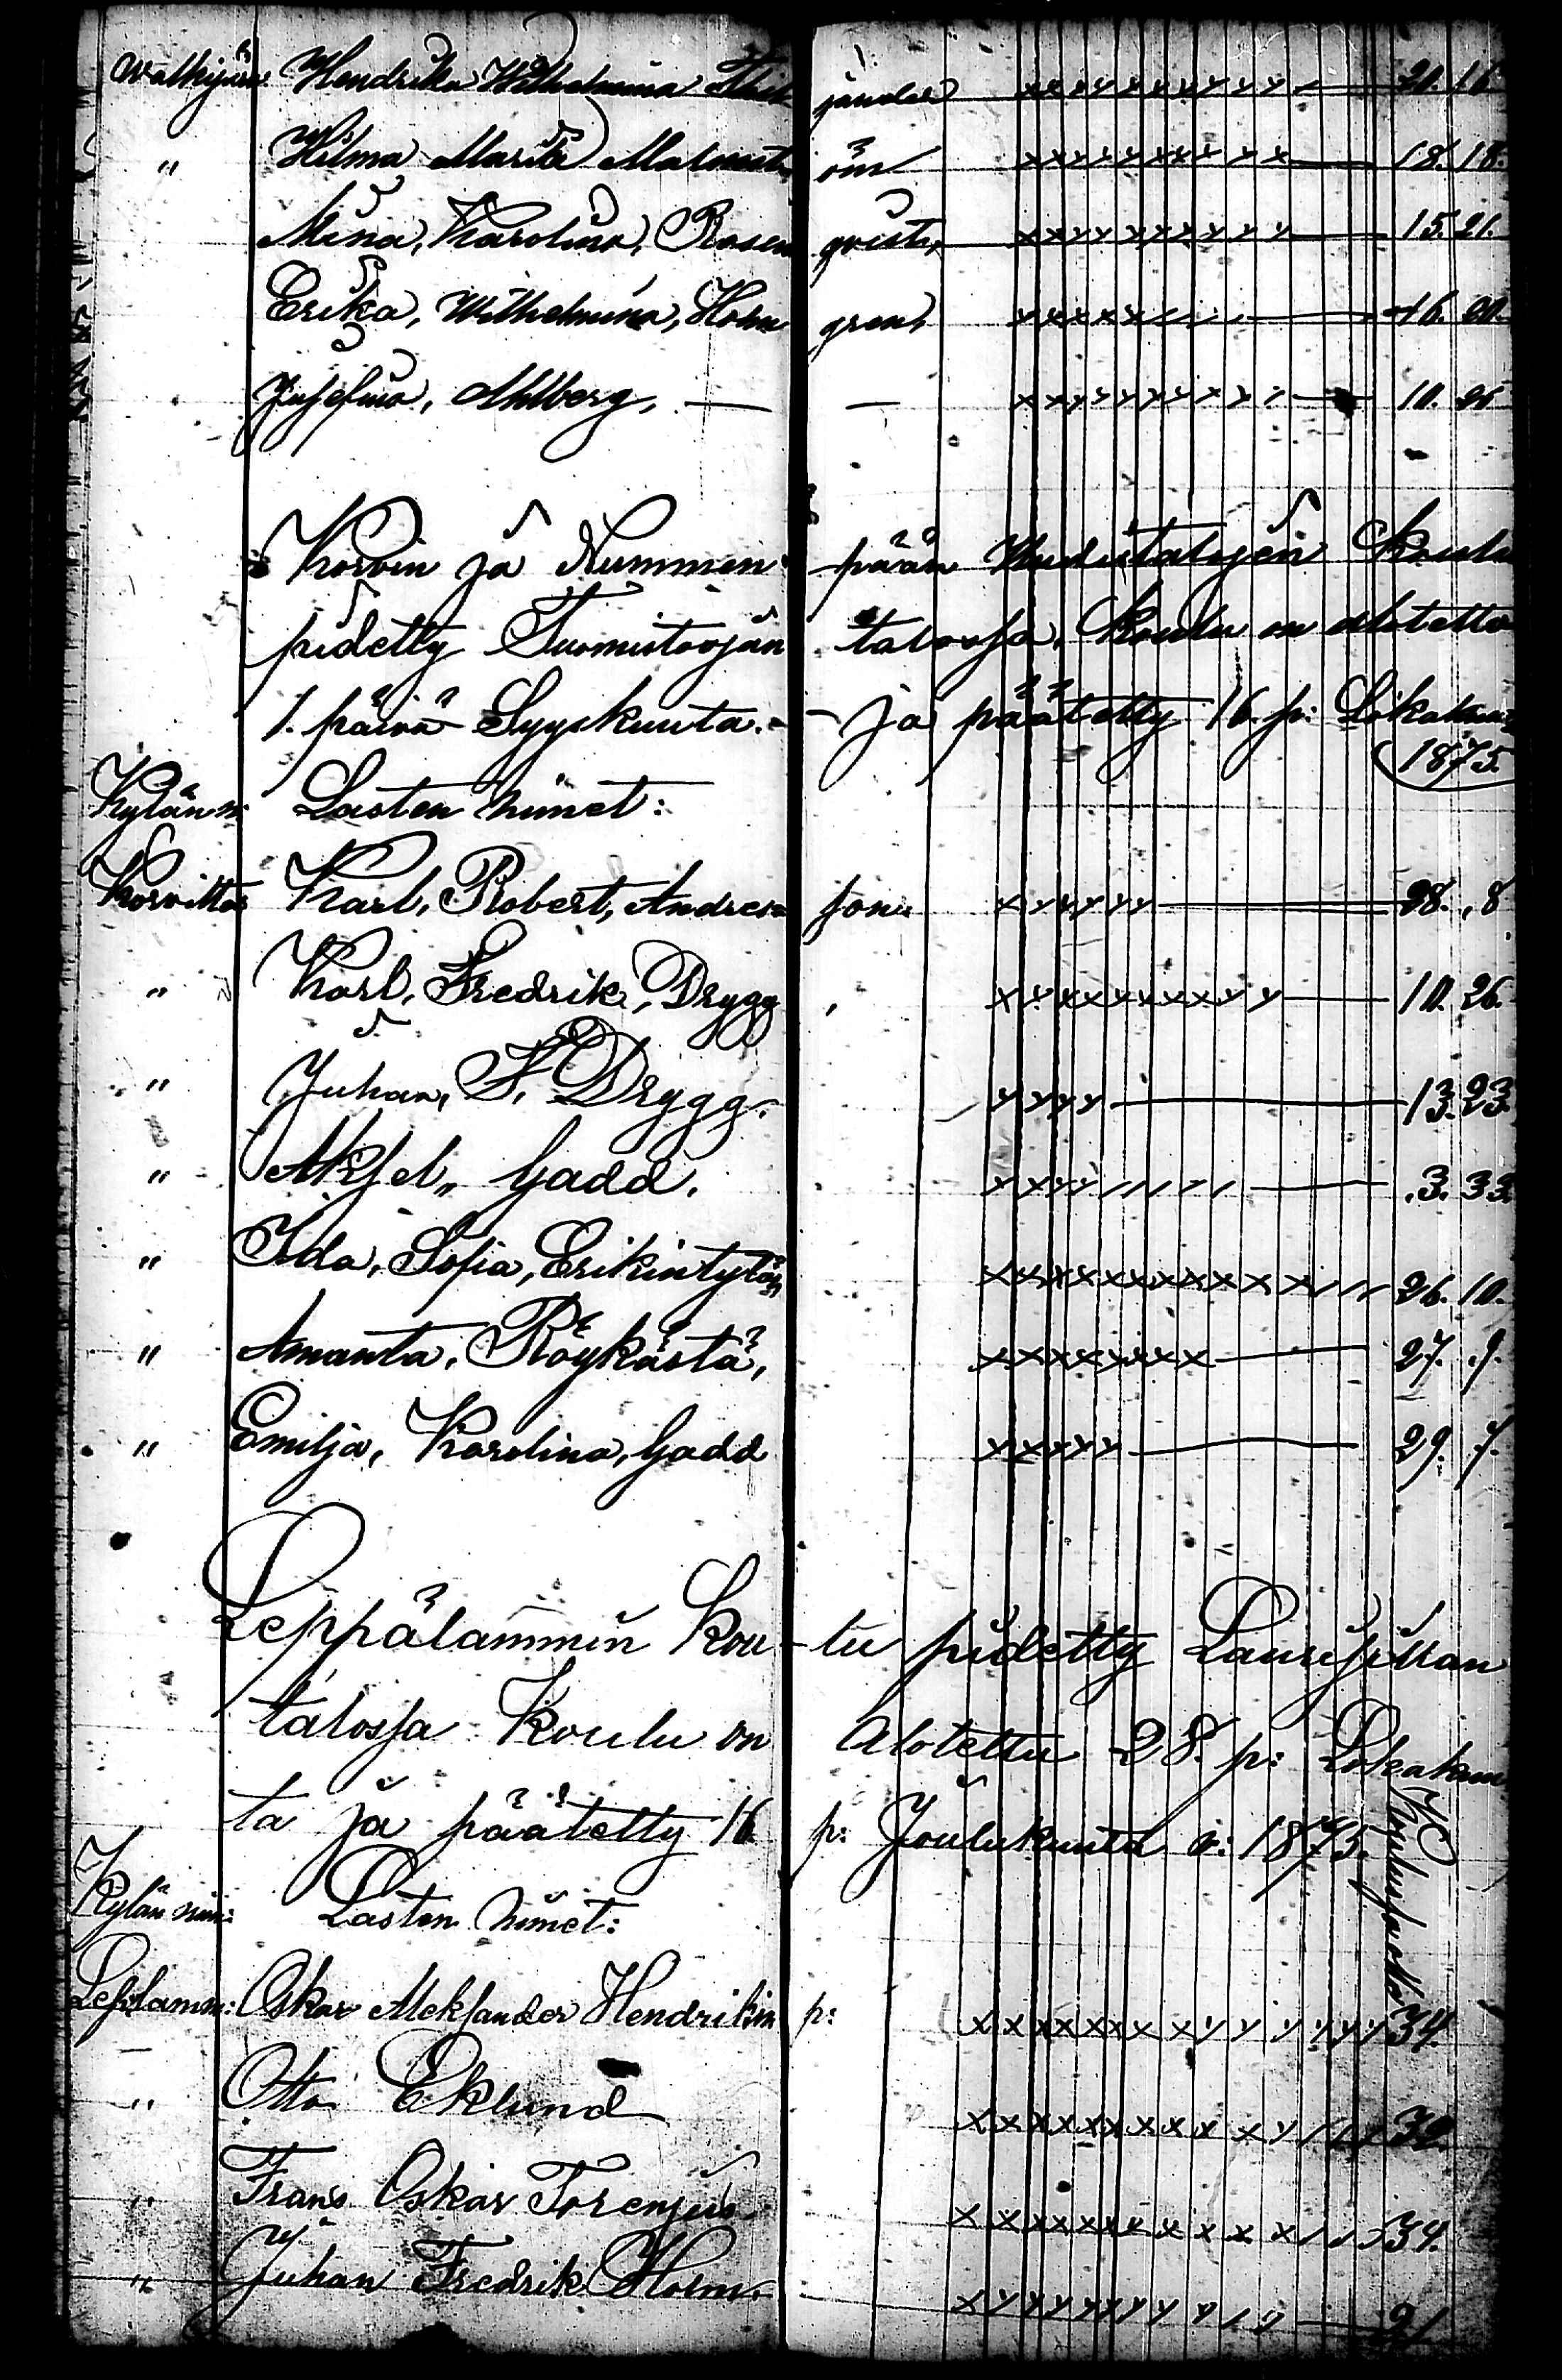 Walkijärv Hendrika Wilhelmina jander xxyyyyyyyyy 20. 16
" Hilma Maria Malmst öm xxyyyyxxyyx 18. 18.
Mina, Karolina, Rosen qvist, xxyyyyyyyyy 15. 21.
Erika, Wilhelmina, Holm gren, yxxxx///// 16. 20.
Josefina, Ahlberg, — — xxyyyyyyyy/ 10. 26
Korvin ja Nummen pään Uudistalojen Koulu
pidetty Tuomistoojan talossa, Koulu on alotettu
1. päivä Syyskuuta. - ja päätetty 16. p: Lokakuuta
1875.
Kylän n: Lasten nimet:
Korvitta Karl, Robert, Andres sonu xyyyyy 28. 8
" Karl, Fredrik, Drygg xyxxxxxxyy 10. 26.
" Juhan, F. Drygg. yyyy 13. 23
" Aksel,, Gadd. yyyy///// 3. 33.
" Ida, Sofia, Erikintytär xxxxxxxxxxxx/// 26. 10.
" Amanta, Röykästä, xxxxxxxx 27. 9.
" Emilja, Karolina, Gadd xxxyy 29. 7.
Leppälammin Kou-lu pidetty Laurisillan
talossa Koulu on Alotettu 28. p: Lokakuu
ta ja päätetty 16 p: Joulukuuta v: 1875.
Kylän nim: Lasten nimet:
Leplamm: Oskar Aleksander Hendrikin p: xxxxxxxxyyyyyyy 34.
" Otto Eklund xxxxxxxxxxy//// 32.
" Frans Oskar Torenius xxxxxxxxxxx//// 34.
" Juhan Fredrik Holm. xyyyyyyyy 21